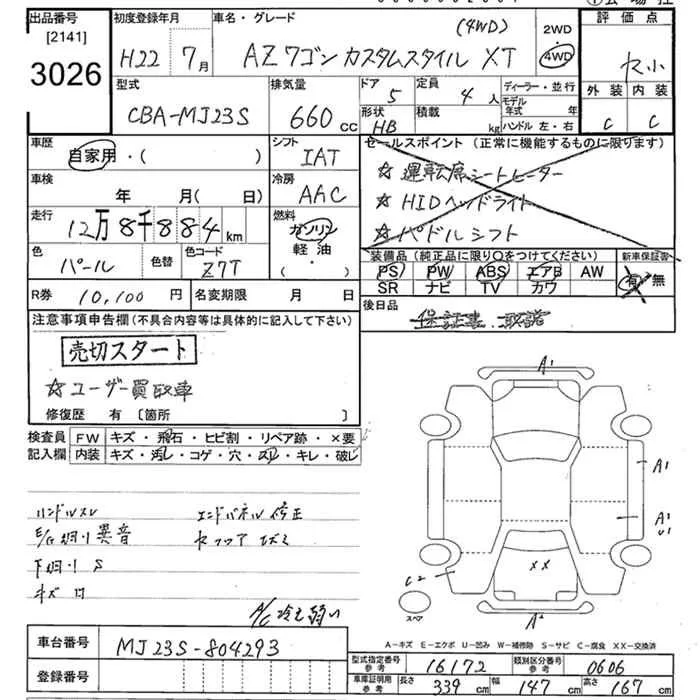 出品番号 [2141] 3026
初度登録年月 H22 7月
車名・グレード (4WD) AZワゴン カスタムスタイル XT
2WD・4WD
評価点
外装 C 内装 C
型式 CBA-MJ23S
排気量 660cc
ドア 5 定員 4人
形状 HB 積載 kg
ディーラー・並行
モデル年式 年
ハンドル 左・右
車歴 自家用・( )
シフト IAT
車検 年 月(日)
冷房 AAC
走行 12万8千884km
燃料 ガソリン 軽油 ・( )
色 パール 色替 色コード Z7T
R券 10,100円 名変期限 月 日
セールスポイント (正常に機能するものに限ります)
☆運転席シートヒーター
☆HIDヘッドライト
☆パドルシフト
装備品(純正品に限り○をつけてください)
PS PW ABS エアB AW
SR ナビ TV カワ
新車保証書 有・無
後日品 保証書、取説
注意事項申告欄(不具合内容等は具体的に記入して下さい)
売切スタート
☆ユーザー買取車
修復歴 有〔箇所 〕
検査員記入欄
FW キズ・飛石・ヒビ割・リペア跡・×要
内装 キズ・汚レ・コゲ・穴・スレ・キレ・破レ
ハンドルスレ エンドパネル修正
E/G廻り異音
下廻りS
A/C冷え弱い
A1
A1
A1
U1
C2
××
A2
スペア
A-キズ E-エクボ U-凹み W-補修跡 S-サビ C-腐食 XX-交換済
車台番号 MJ23S-804293
登録番号
型式指定番号参考 16172 類別区分番号参考 0606
車庫証明用参考 長さ 339cm 幅 147cm 高さ 167cm